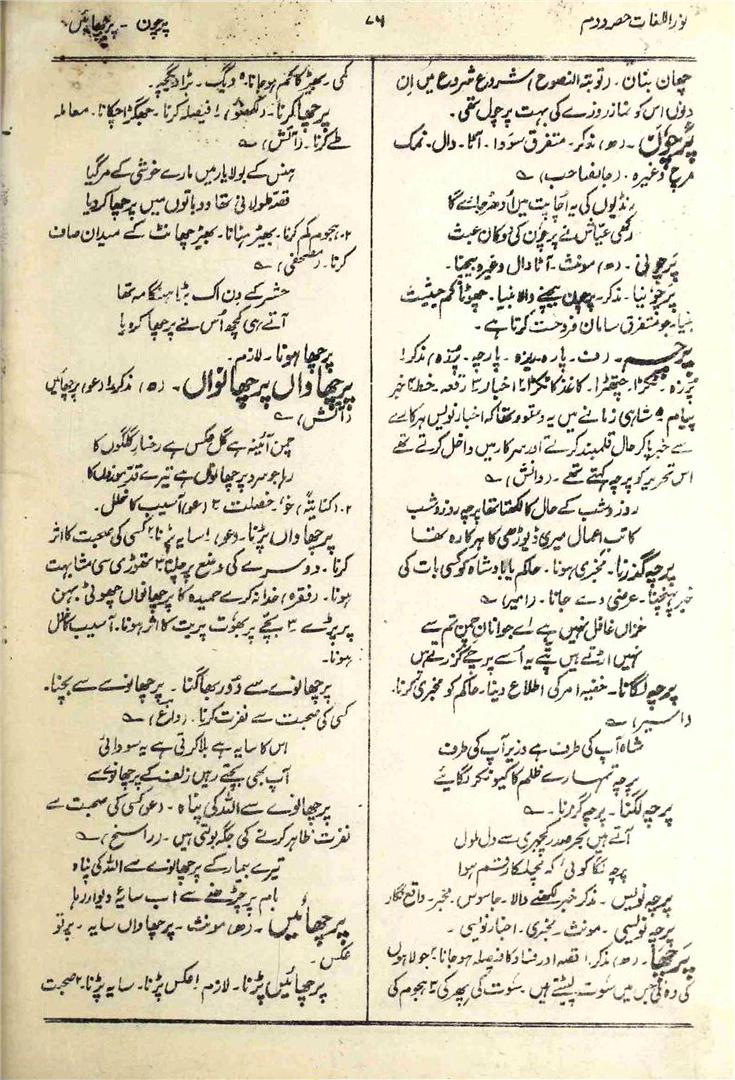 نوراللغات حصہ دوم
۷۶
پرچون - پرچھائیں
چھان بنان۔ (توبتہ النصوح) شروع شروع میں اِن
دونوں اس کو نماز روزے کی بہت پرچول تھی۔
پَرچُون۔ (ھ) مذکر۔ متفرق سَودا۔ آٹا۔ دال۔ نمک
مرچ وغیرہ۔ (جانصاحب) ؎
رنڈیوں کی یہ اُچاپت میں اُدھر جائے گا
رکھی عیاش نے پرچون کی دوکان عبث
پَرچونی۔ (ھ) مونث۔ آٹا دال وغیرہ بیچنا۔
پَرچونیا۔ مذکر۔ پرچون بیچنے والا بنیا۔ چھوٹا کم حیثیت
بنیا۔ جو متفرق سامان فروخت کرتا ہے۔
پرچہ۔ (ف۔ پارہ۔ ریزہ۔ پارچہ۔ پرزہ) مذکر ۱
پرزہ۔ ٹکڑا۔ چتھڑا۔ کاغذ کا ٹکڑا ۲ اخبار ۳ رقعہ۔ خط ۴ خبر
پیام ۵ شاہی زمانے میں یہ دستور تھا کہ اخبار نویس ہرکارے
سے خبر پا کر حال قلمبند کرتے اور سرکار میں داخل کرتے تھے
اس تحریر کو پرچہ کہتے تھے۔ (آتش) ؎
روز و شب کے حال کا لکھتا تھا پرچہ روز و شب
کاتب اعمال میری ڈیوڑھی کا ہرکارہ تھا
پرچہ گذرنا۔ مخبری ہونا۔ حاکم یا بادشاہ کو کسی بات کی
خبر پہنچنا۔ عرضی دے جانا۔ (امیر) ؎
خزاں غافل نہیں ہے اے جوانان چمن تم سے
نہیں اڑتے ہیں پتے یہ اُسے پرچے گزرتے ہیں
پرچہ لگانا۔ خفیہ امر کی اطلاع دینا۔ حاکم کو مخبری کرنا۔
(اسیر) ؎
شاہ آپ کی طرف ہے وزیر آپ کی طرف
پرچہ تمہارے ظلم کا کیونکر لگائیے
پرچہ لگنا۔ پرچہ گزرنا۔ ؎
آتے ہیں بحر صدر کچہری سے دل ملول
پرچہ لگا کوئی کہ مچلکا رقم ہوا
پرچہ نویس۔ مذکر خبر لکھنے والا۔ جاسوس۔ مخبر۔ واقع نگار
پرچہ نویسی۔ مونث۔ مخبری۔ اخبار نویسی۔
پرچھا۔ (ھ) مذکر ۱ قصہ اور فساد کا فیصلہ ہوجانا ۲ جولاہوں
کی وہ نلی جس میں سُوت لپیٹتے ہیں۔ سوت کی پھرکی ۳ ہجوم کی
کمی۔ بھیڑ کا کم ہوجانا ۴ دیگ۔ بڑا دیگچہ۔
پرچھا کرنا۔ (لکھنؤ) ۱ فیصلہ کرنا۔ جھگڑا چکانا۔ معاملہ
طے کرنا۔ (آتش) ؎
ہنس کے بولا یار میں مارے خوشی کے مر گیا
قصہ طولانی تھا دو باتوں میں پرچھا کردیا
۲۔ ہجوم کم کرنا۔ بھیڑ ہٹانا۔ بھیڑ چھانٹ کے میدان صاف
کرنا۔ (مصحفی) ؎
حشر کے دن اک بڑا ہنگامہ تھا
آتے ہی کچھ اُس نے پرچھا کر دیا
پرچھا ہونا۔ لازم۔
پرچھاواں پرچھانواں۔ (ھ) مذکر ۱ (عو) پرچھائیں
(آتش) ؎
چمن آئینہ ہے گل عکس ہے رخسار گلگوں کا
رہا جو سرو پرچھانواں ہے تیرے قد موزوں کا
۲۔ (کنایتہ) خو۔ خصلت ۳ (عو) آسیب کا خلل۔
پرچھاواں پڑنا۔ (عو) ۱ سایہ پڑنا ۲ کسی کی صحبت کا اثر
کرنا۔ دوسرے کی وضع پر چلنا ۳ تھوڑی سی مشابہت
ہونا۔ (فقرہ) خدا نہ کرے حمیدہ کا پرچھانواں چھوٹی بہن
پر پڑے ۴ بچے پر بھوت پریت کا اثر ہونا۔ آسیب کا خلل
ہونا۔
پرچھانوے سے دُور بھاگنا۔ پرچھانوے سے بچنا۔
کسی کی صحبت سے نفرت کرنا۔ (داغ) ؎
اس کا سایہ ہے بلا کرتی ہے یہ سودائی
آپ بھی بچتے رہیں زلف کے پرچھانوے سے
پرچھانوے سے اللہ کی پناہ۔ (عو) کسی کی صحبت سے
نفرت ظاہر کرنے کی جگہ بولتی ہیں۔ (راسخ) ؎
تیرے بیمار کے پرچھانوے سے اللہ کی پناہ
بام پر چڑھنے سے اب سایۂ دیوار رہا
پرچھائیں۔ (ھ) مونث۔ پرچھاواں سایہ۔ پرتو
عکس۔
پرچھائیں پڑنا۔ لازم ۱ عکس پڑنا۔ سایہ پڑنا۔ ۲ صحبت